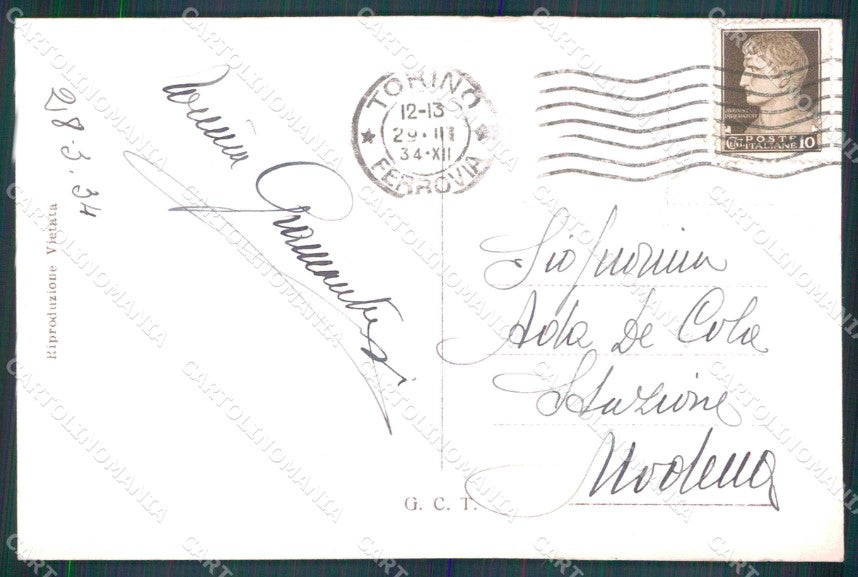 28-3.34
Riproduzione Vietata
TORINO
12-13
29·III
34·XII
FERROVIA
POSTE
ITALIANE 10
Signorina
Ada De Cola
Stazione
Modena
G. C. T.
CARTOLINOMANIA